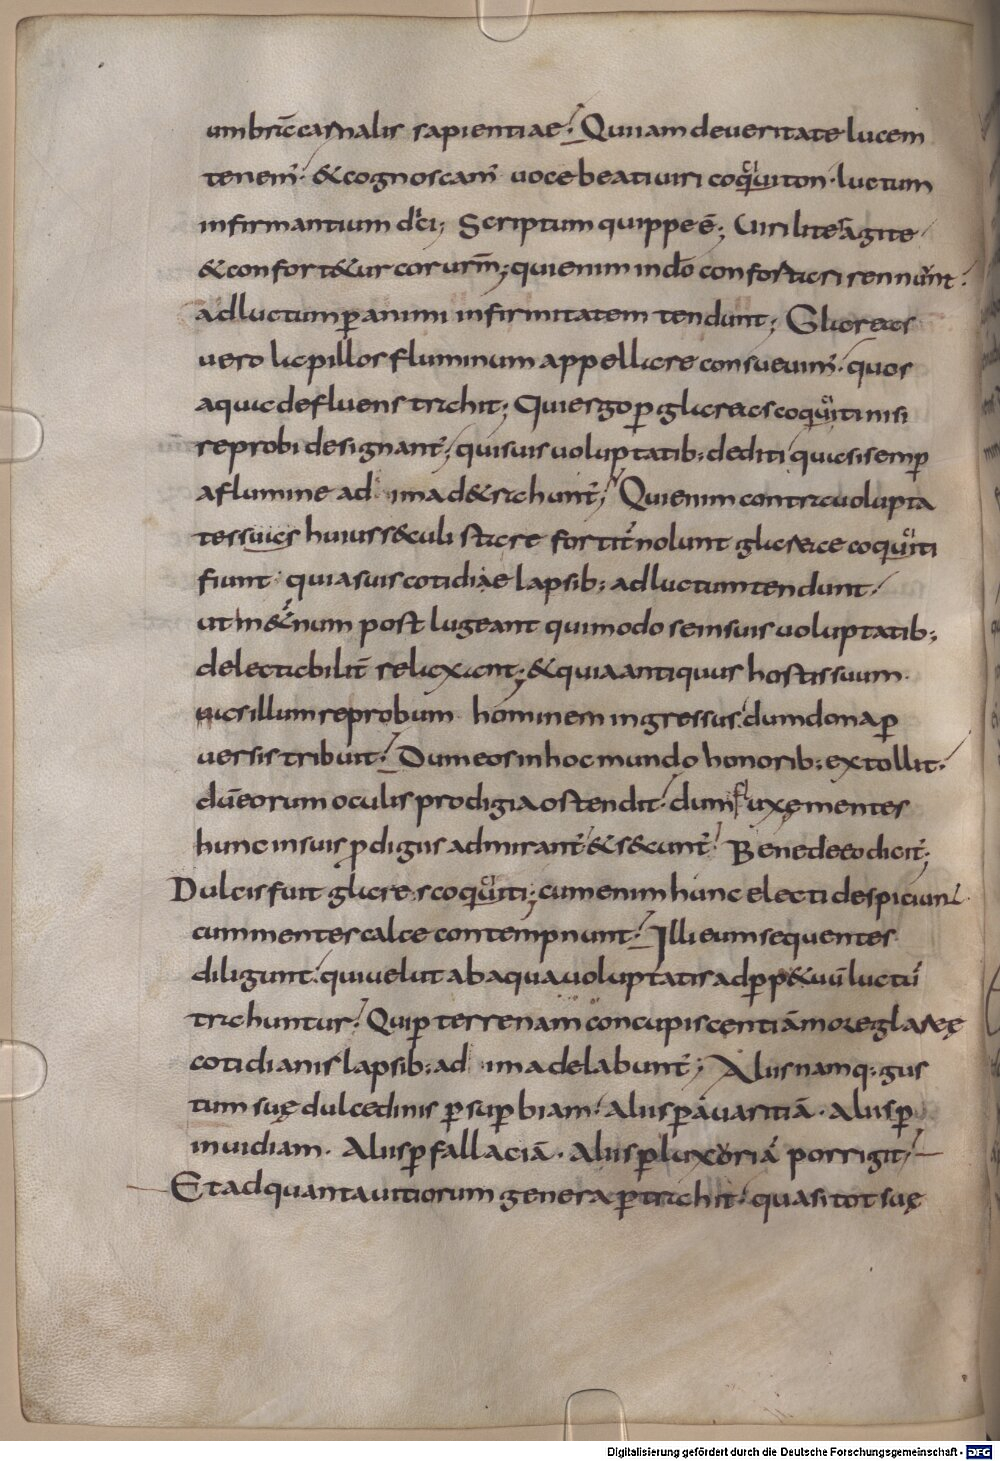 umbrā carnalis sapientiae; Quiiam deveritate lucem
tenem; &cognoscam voce beati viri coq̊uiton luctum
infirmantium dici; Scriptum quippe ē; Viriliter agite
&confort&ur cor urm; qui enim indo confortari rennunt;
adluctum ꝑ animi infirmitatem tendunt; Glareas
vero lapillos fluminum appellare consuevim; quos
aqua defluens trahit; Qui ergo ꝑ glareas coquiti nisi
reprobi designant; qui suis voluptatib; dediti quasi semꝑ
aflumine ad ima d&rahunt; Qui enim contra volupta
tes suas huius s&culi stare fortit nolunt glareae coquiti
fiunt quia suis cotidiae lapsib; adluctum tendunt
ut in &num post lugeant qui modo se in suis voluptatib;
delectabilit relaxant; &quia antiquus hostis suum
vas illum reprobum hominem ingressus; dum dona ꝑ
versis tribuit; Dum eos in hoc mundo honorib; extollit;
dū eorum oculis prodigia ostendit; dum fluxę mentes
hunc in suis pdigiis admirant &s&cunt; Bene de eo dicit;
Dulcis fuit glareis coquiti; cum enim hunc electi despiciunt
cum mentes calce contempnunt; Illi eum sequentes
diligunt; qui velut ab aqua voluptatis adꝑp&uū luctū
trahuntur; Qui ꝑ terrenam concupiscentiā more glareę
cotidianis lapsib; ad ima delabunt; Aliis namq; gus
tum suę dulcedinis ꝑ suꝑbiam; Aliis ꝑ avaritiā. Aliis ꝑ
invidiam. Aliis ꝑ fallaciā. Aliis ꝑ luxoriā porrigit;
Et ad quanta vitiorum genera ꝑtrahit; quasi tot suę
Digitalisierung gefördert durch die Deutsche Forschungsgemeinschaft - DFG